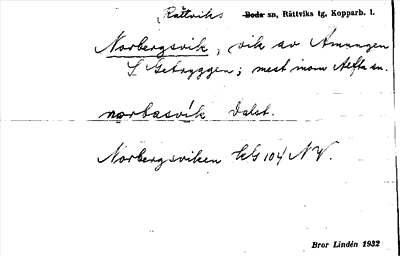 Rättviks
Boda sn, Rättviks tg, Kopparb. l.
Norbergsvik, vik av Amungen
S Getryggen; mest inom Alfta sn.
norbasvik Dalst.
Norbergsviken EG 104 NV.
Bror Lindén 1932